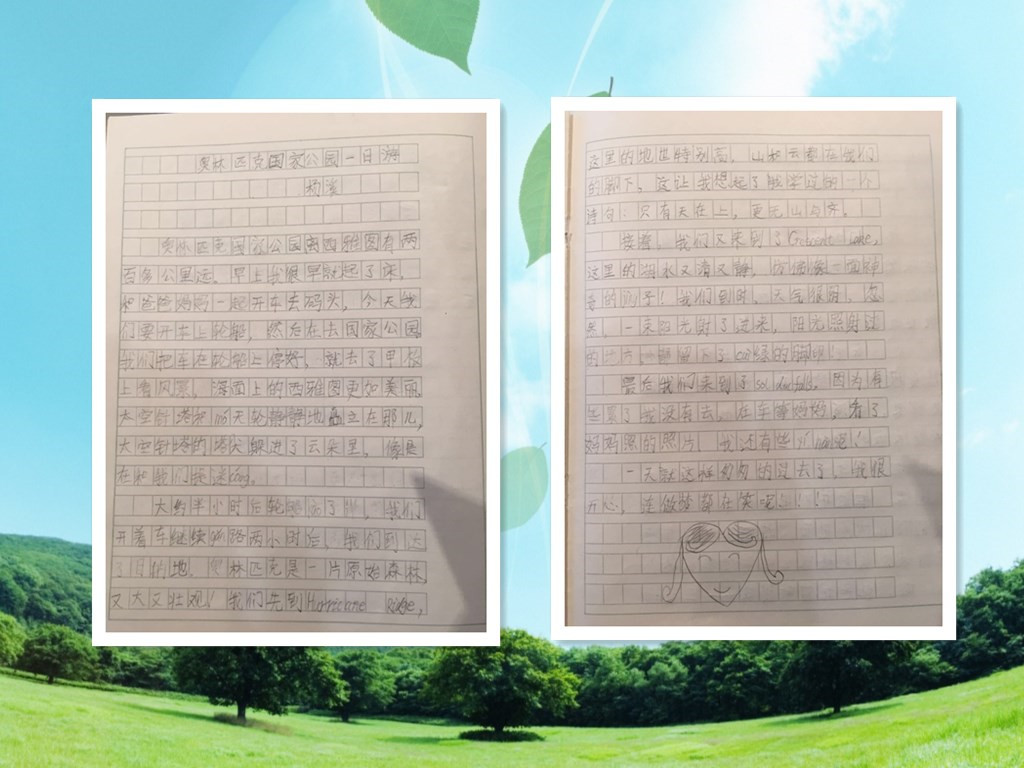 奥林匹克国家公园一日游
杨
奥林匹克国家公园离西雅图有两
百多公里远。早上我很早就起了床,
和爸爸妈妈一起开车去码头,今天我
们要开车上轮船,然后在去国家公园
我们把车在轮船上停好,就去了甲板
上看风景,海面上的西雅图更加美丽
太空针塔和摩天轮静静地矗立在那儿,
太空针塔的塔尖躲进了云朵里,像是
在和我们捉迷cang。
大约半小时后轮船了岸,我们
开着车继续 路两小时后,我们到达
了目的地。奥林匹克是一片原始森林,
又大又壮观!我们先到Hurricane Ridge,
这里的地世特别高,山和云都在我们
的脚下,这让我想起了我学过的一个
诗句:只有天在上,更无山与齐。
接着,我们又来到了 Lake,
这里的湖水又清又静,仿佛像一面神
奇的 子!我们到时,天气很阴,忽
然,一束阳光射了进来,阳光照射过
的 片上 留下了 绿的脚印!
最后我们来到了sol duc falls,因为有
些累了我没有去,在车 妈妈,看了
妈妈照的照片,我还有些 呢!
一天就这样匆匆的过去了,我很
开心,连做梦都在笑呢!!!